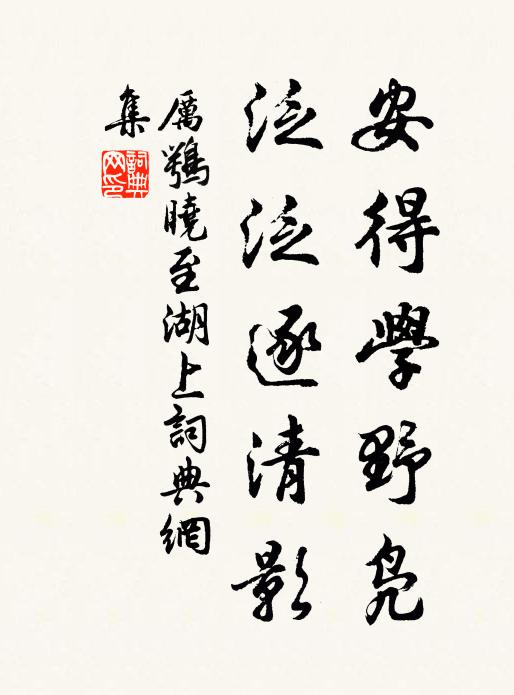 安得學野鳧
泛泛逐清影
厲鶚曉至湖上詞典網
集
詞典网印